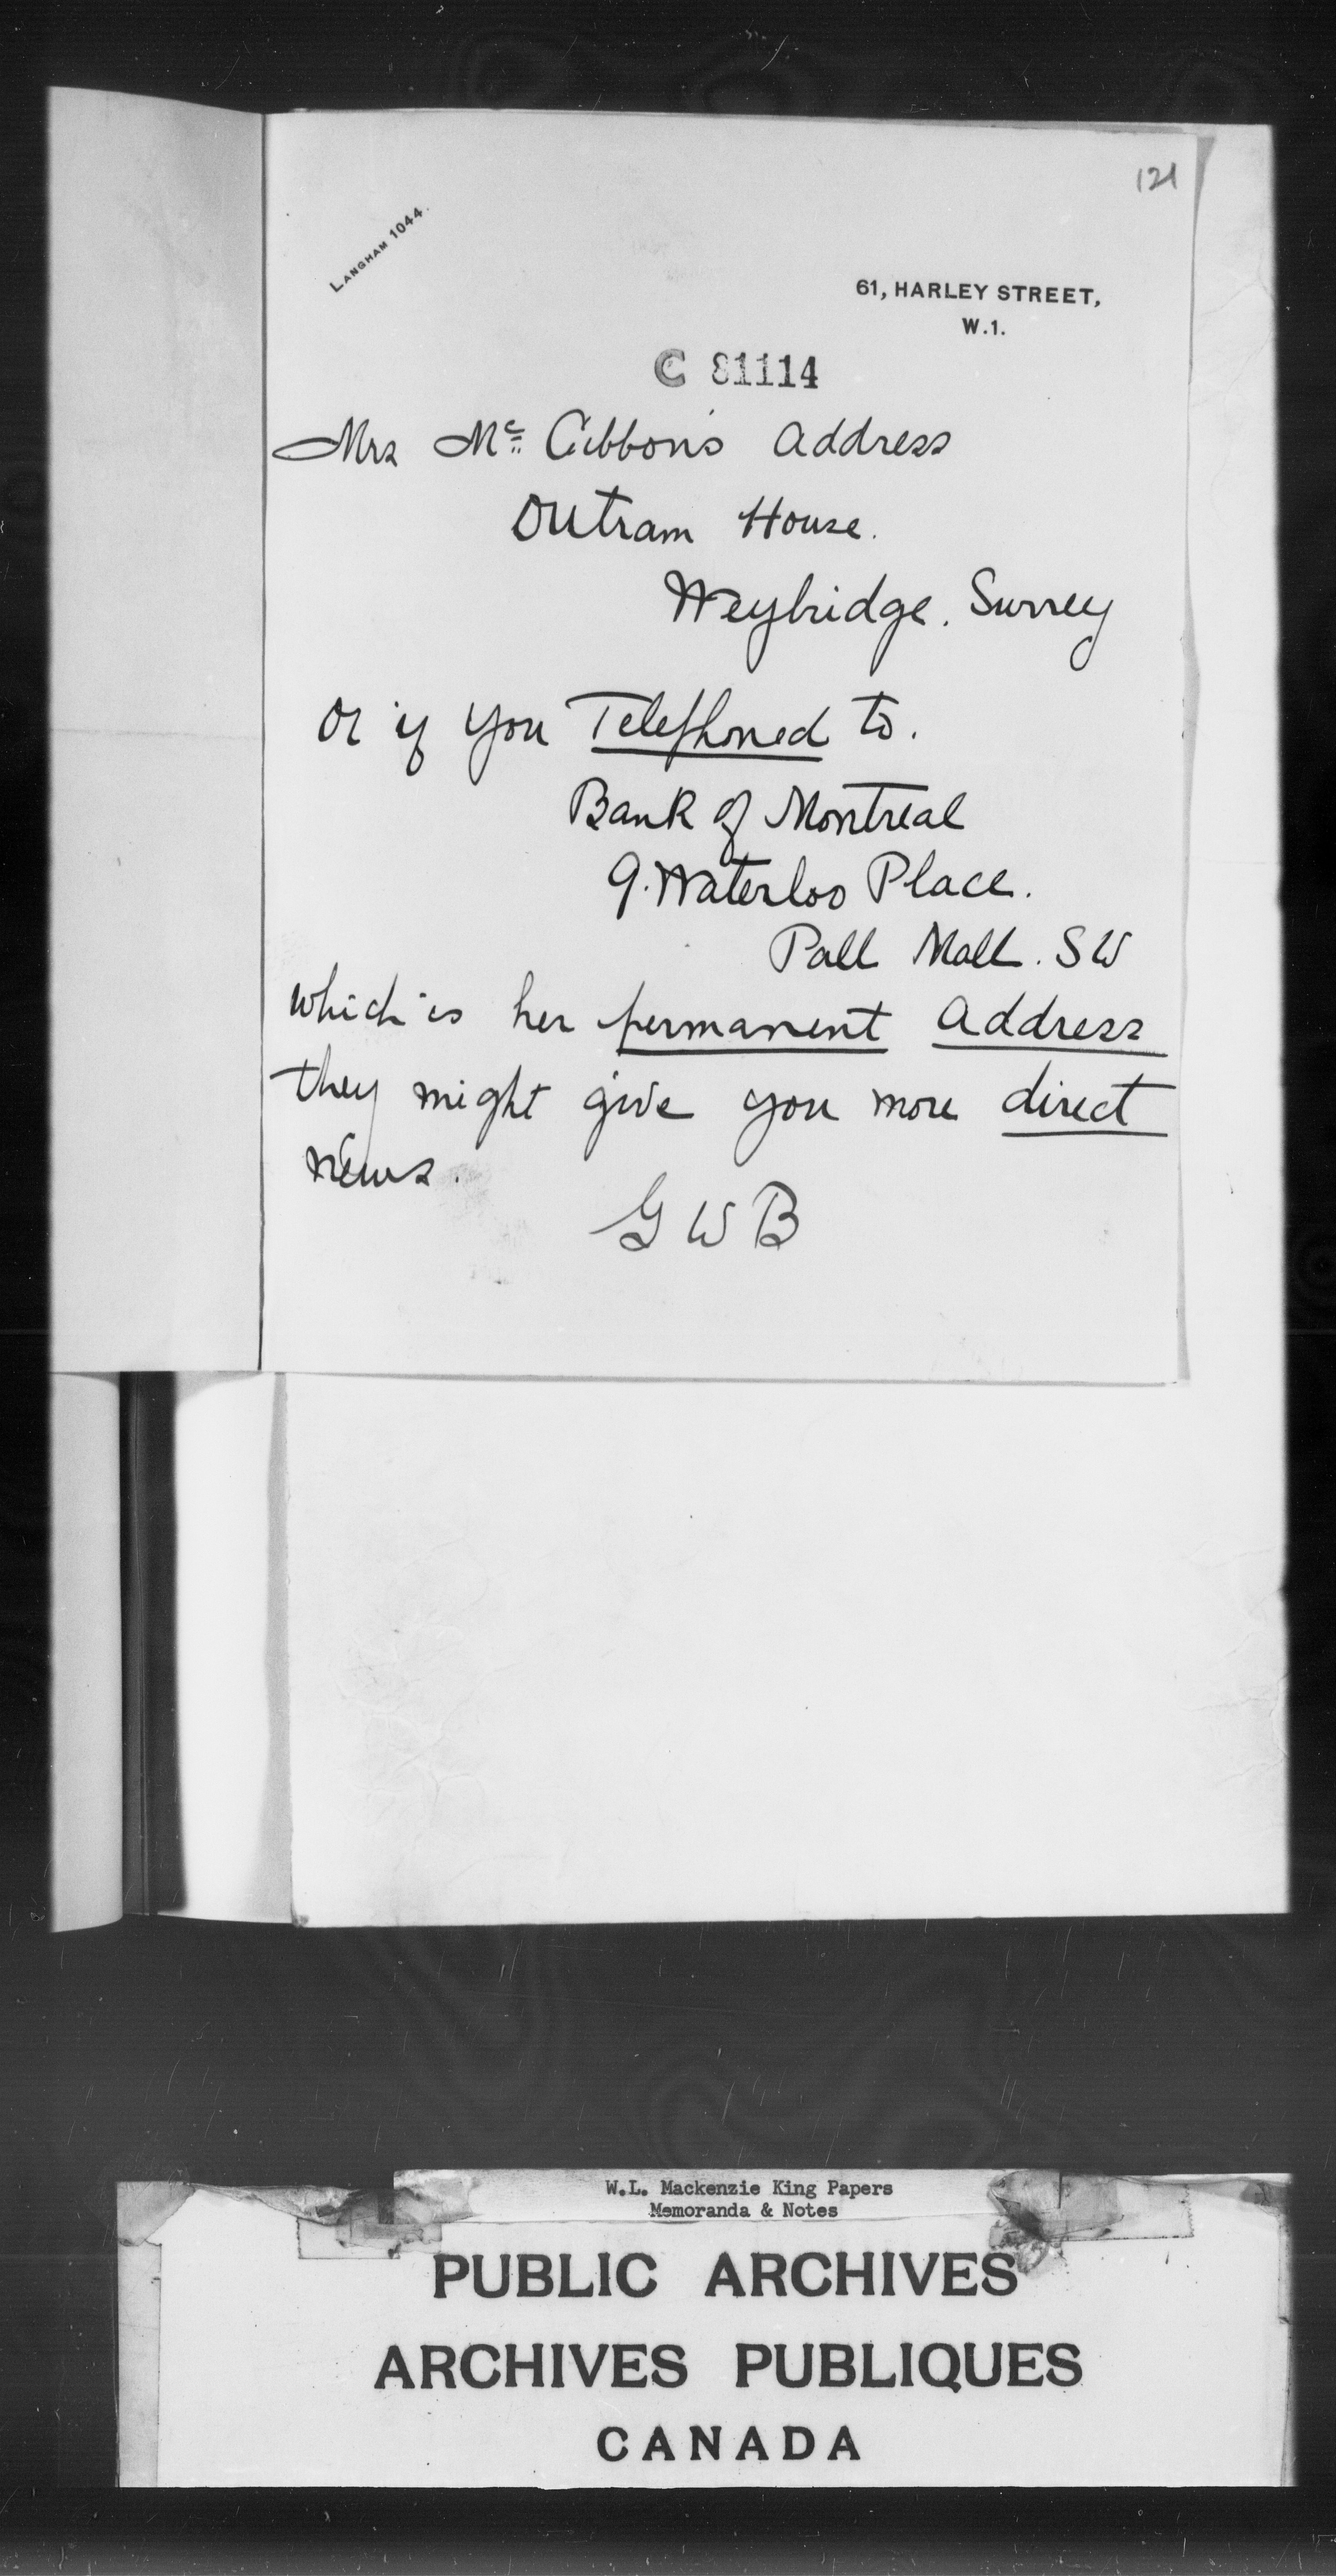 121
LANGHAM 1044.
61, HARLEY STREET,
W.1.
C 81114
Mrs Mc Gibbon's Address
Outram House.
Weybridge. Surrey
Or if you Telephoned to.
Bank of Montreal
9. Waterloo Place.
Pall Mall. SW
which is her permanent Address
they might give you more direct
news.
G W B
W.L. Mackenzie King Papers
Memoranda & Notes
PUBLIC ARCHIVES
ARCHIVES PUBLIQUES
CANADA